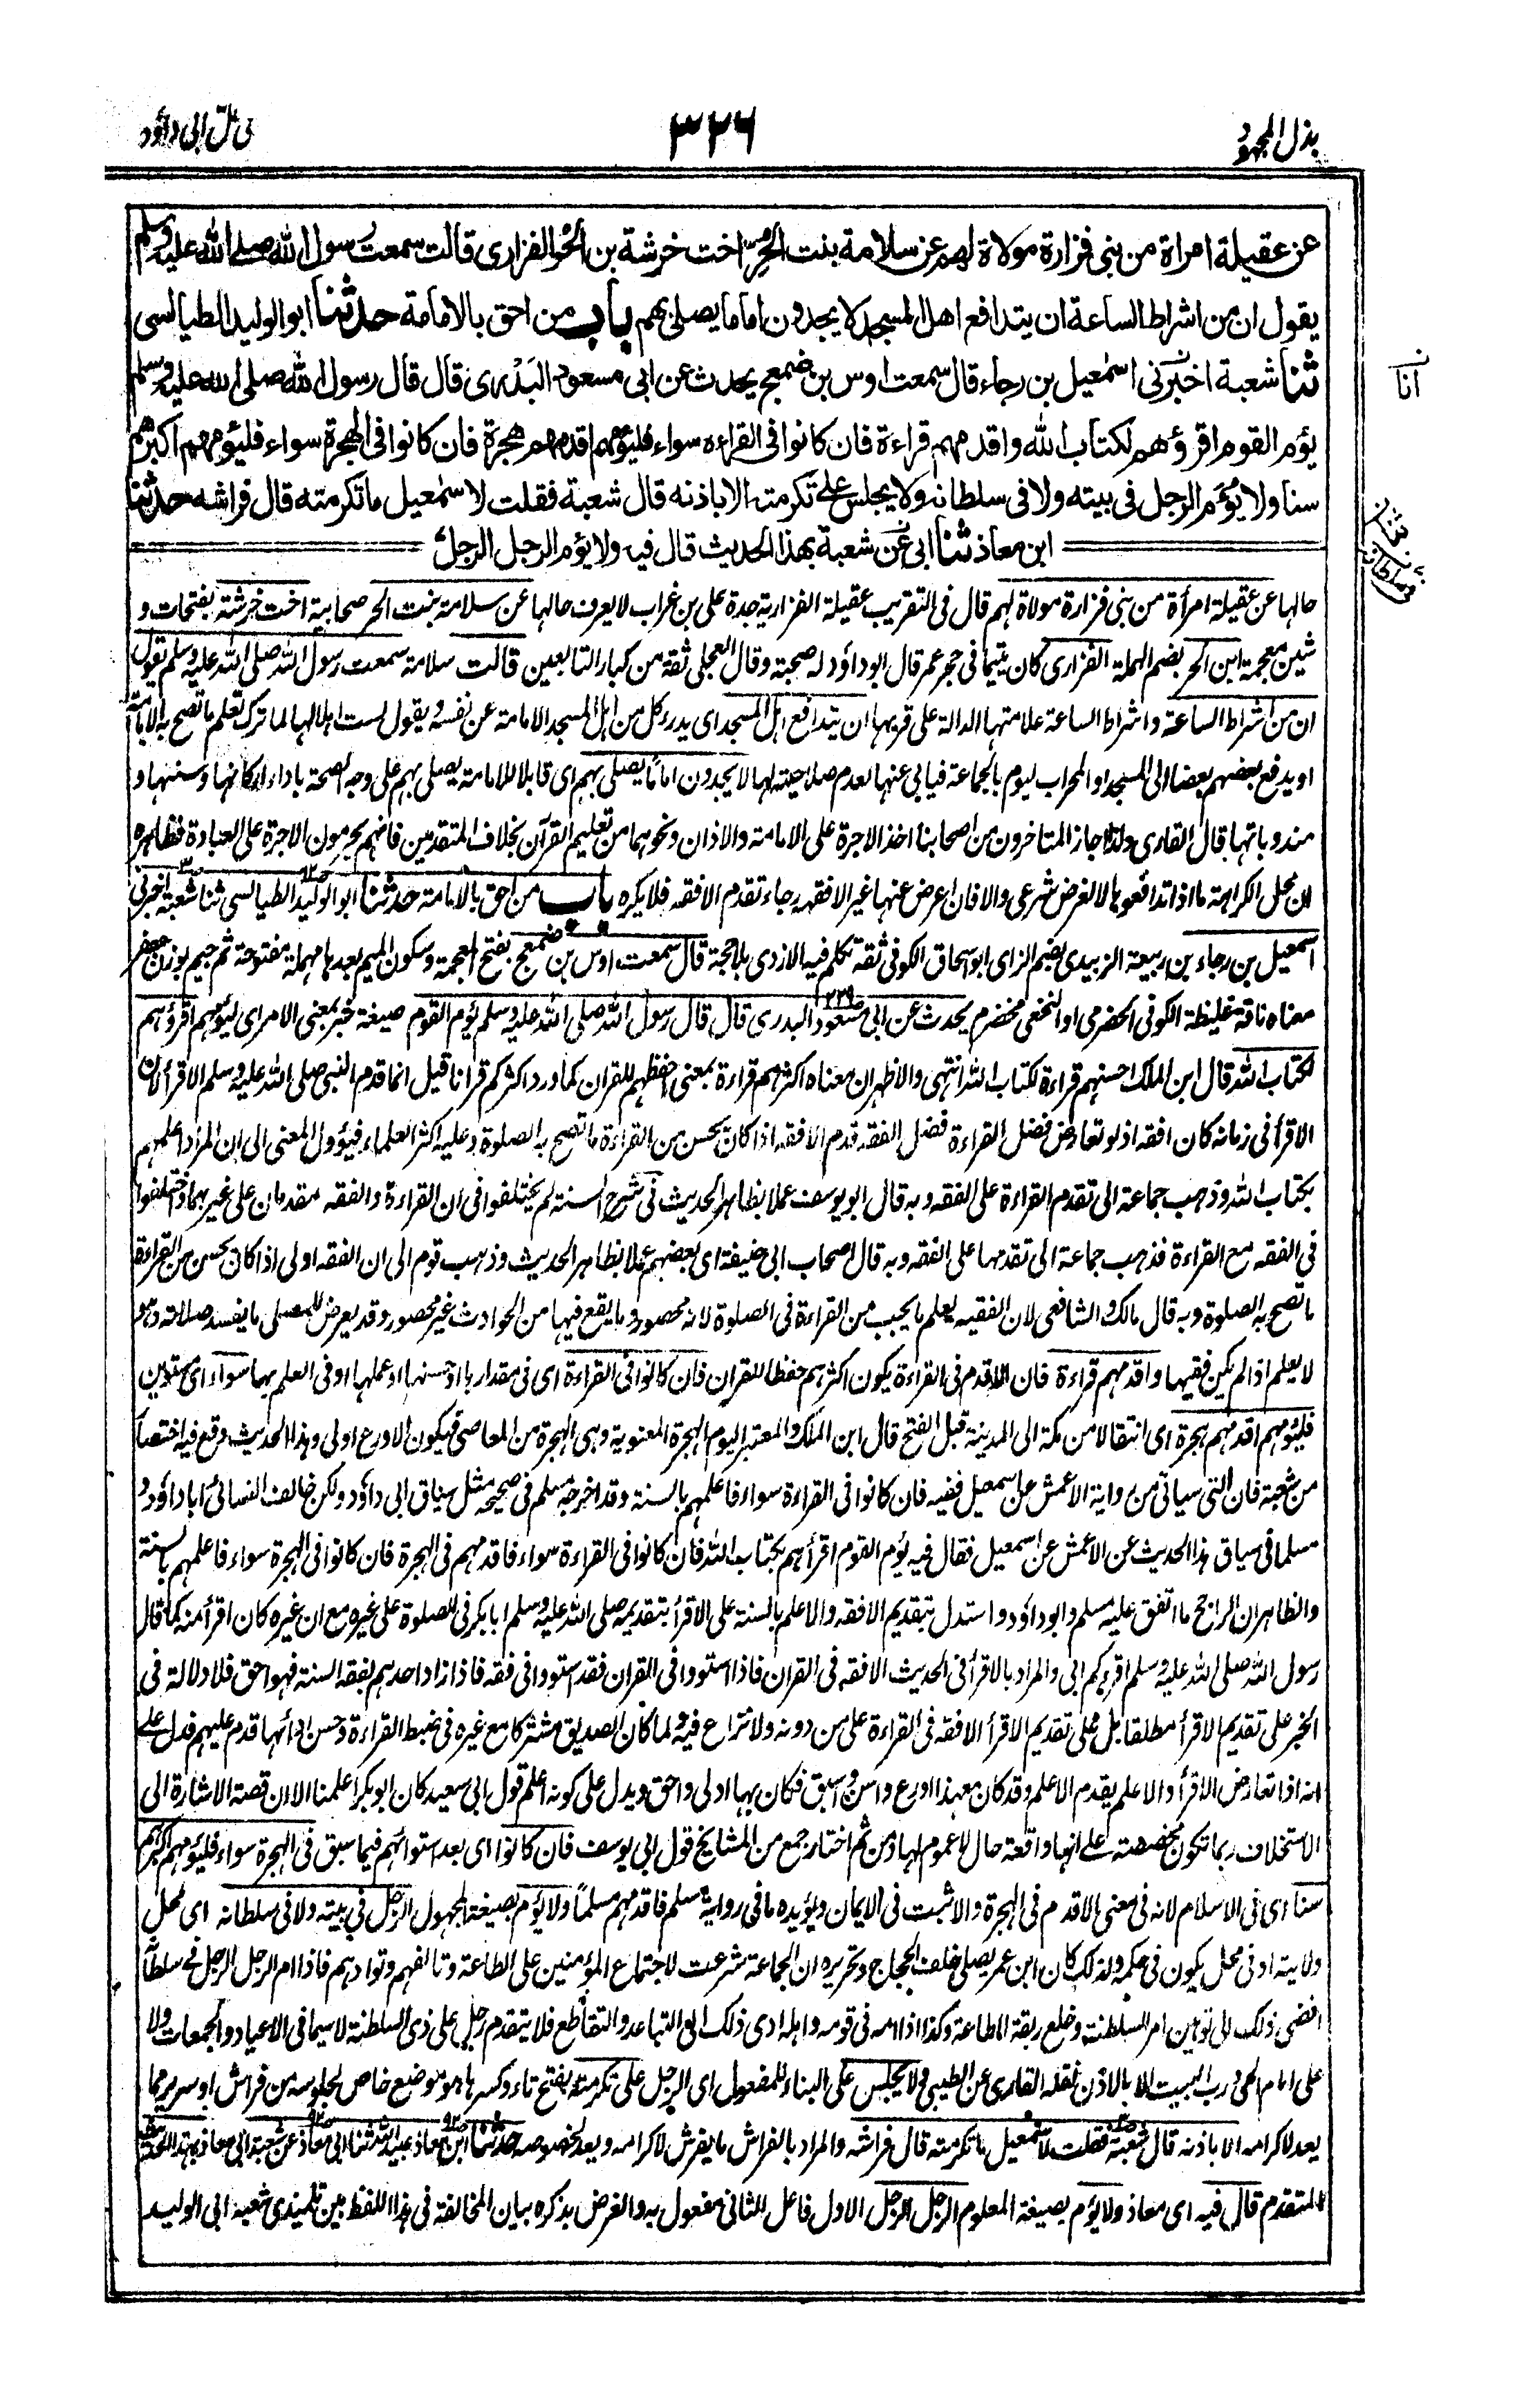 بذل المجهود
٣٢٦
فى حل ابى داؤد
عن عقيلة امراة من بنى فزارة مولاة لهم عن سلامة بنت الحر اخت خرشة بن الحر الفزارى قالت سمعت رسول الله صلى الله عليه وسلم
يقول ان من اشراط الساعة ان يتدافع اهل المسجد لا يجدون اماما يصلى بهم باب من احق بالامامة حدثنا ابو الوليد الطيالسى
ثنا شعبة اخبرنى اسمعيل بن رجاء قال سمعت اوس بن ضمعج يحدث عن ابى مسعود البدرى قال قال رسول الله صلى الله عليه وسلم
يؤم القوم اقرؤهم لكتاب الله واقدمهم قراءة فان كانوا فى القراءه سواء فليؤمهم اقدمهم هجرة فان كانوا فى الهجرة سواء فليؤمهم اكبرهم
سنا ولا يؤم الرجل فى بيته ولا فى سلطانه ولا يجلس على تكرمته الا باذنه قال شعبة فقلت لاسمعيل ما تكرمته قال فراشه حدثنا
ابن معاذ ثنا ابى عن شعبة بهذا الحديث قال فيه ولا يؤم الرجل الرجل
انا
حالها عن عقيلة امرأة من بنى فزارة مولاة لهم قال فى التقريب عقيلة الفزارية جدة على بن غراب لا يعرف حالها عن سلامة بنت الحر صحابية اخت خرشة بفتحات و
شين معجمة ابن الحر بضم المهملة الفزارى كان يتيما فى حجر عمر قال ابو داؤد له صحبة وقال العجلى ثقة من كبار التابعين قالت سلامة سمعت رسول الله صلى الله عليه وسلم يقول
ان من اشراط الساعة واشراط الساعة علامتها الدالة على قربها ان يتدافع اهل المسجد اى يدرء كل من اهل المسجد الامامة عن نفسه ويقول لست اهلا لها لما ترك تعلم ما تصح به الامامة
او يدفع بعضهم بعضا الى المسجد او المحراب ليوم بالجماعة فيابى عنها لعدم صلاحيته لها لا يجدون اماما يصلى بهم اى قابلا للامامة يصلى بهم على وجه الصحة باداء اركانها وسننها و
مندوباتها قال القارى ولذا جاز المتاخرون من اصحابنا اخذ الاجرة على الامامة والاذان ونحوهما من تعليم القرآن بخلاف المتقدمين فانهم يحرمون الاجرة على العبادة فظاهره
ان محل الكراهة ما اذا تدافعوا لا لغرض شرعى والا فان اعرض عنها غير الافقه رجاء تقدم الافقه فلا يكره باب من احق بالامامة حدثنا ابو الوليد الطيالسى ثنا شعبة اخبرنى
اسمعيل بن رجاء بن ربيعة الزبيدى بضم الزاى ابو اسحاق الكوفى ثقة تكلم فيه الازدى بلا حجة قال سمعت اوس بن ضمعج بفتح المعجمة وسكون الميم بعدها مهملة مفتوحة ثم جيم بوزن جعفر
معناه ناقة غليظة الكوفى الحضرمى او النخعى مخضرم يحدث عن ابى مسعود البدرى قال قال رسول الله صلى الله عليه وسلم يؤم القوم صيغة خبر بمعنى الامر اى ليؤمهم اقرؤهم
لكتاب الله قال ابن الملك احسنهم قراءة لكتاب الله انتهى والاظهر ان معناه اكثرهم قراءة بمعنى احفظهم للقران كما ورد اكثركم قرانا قيل انما قدم النبى صلى الله عليه وسلم الاقرأ لان
الاقرأ فى زمانه كان افقه اذ لو تعارض فضل القراءة فضل الفقه قدم الافقه اذا كان يحسن من القراءة ما تصح به الصلوة وعليه اكثر العلماء فيؤول المعنى الى ان المراد اعلمهم
بكتاب الله وذهب جماعة الى تقدم القراءة على الفقه وبه قال ابو يوسف عملا بظاهر الحديث فى شرح السنة لم يختلفوا فى ان القراءة والفقه مقدمان على غيرهما واختلفوا
فى الفقه مع القراءة فذهب جماعة الى تقدمها على الفقه وبه قال اصحاب ابى حنيفة اى بعضهم عملا بظاهر الحديث وذهب قوم الى ان الفقه اولى اذا كان يحسن من القراءة
ما تصح به الصلوة وبه قال مالك والشافعى لان الفقيه يعلم ما يجب من القراءة فى الصلوة لانه محصور وما يقع فيها من الحوادث غير محصور وقد يعرض للمصلى ما يفسد صلاته وهو
لا يعلم اذا لم يكن فقيها واقدمهم قراءة فان الاقدم فى القراءة يكون اكثرهم حفظا للقران فان كانوا فى القراءة اى فى مقدارها او حسنها او عملها او فى العلم بها سواء اى مستوين
فليؤمهم اقدمهم هجرة اى انتقالا من مكة الى المدينة قبل الفتح قال ابن الملك والمعتبر اليوم الهجرة المعنوية وهى الهجرة من المعاصى فيكون الاورع اولى وهذا الحديث وقع فيه اختصار
من شعبة فان التى سياتى من رواية الاعمش عن اسمعيل ففيه فان كانوا فى القراءة سواء فاعلمهم بالسنة وقد اخرجه مسلم فى صحيحه مثل سياق ابى داؤد ولكن خالف النسائى ابا داؤد و
مسلما فى سياق هذا الحديث عن الاعمش عن اسمعيل فقال فيه يؤم القوم اقرأهم بكتاب الله فان كانوا فى القراءة سواء فاقدمهم فى الهجرة فان كانوا فى الهجرة سواء فاعلمهم بالسنة
والظاهر ان الراجح ما اتفق عليه مسلم وابو داؤد واستدل بتقديم الافقه والاعلم بالسنة على الاقرأ بتقديمه صلى الله عليه وسلم ابا بكر فى الصلوة على غيره مع ان غيره كان اقرأ منه كما قال
رسول الله صلى الله عليه وسلم اقرءكم ابى والمراد بالاقرأ فى الحديث الافقه فى القران فاذا استووا فى القران فقد استووا فى فقهه فاذا زاد احدهم بفقه السنة فهو احق فلا دلالة فى
الخبر على تقديم الاقرأ مطلقا بل على تقديم الاقرأ الافقه فى القراءة على من دونه ولا نزاع فيه ولما كان الصديق مشتركا مع غيره فى ضبط القراءة وحسن ادائها قدم عليهم فدل على
انه اذا تعارض الاقرأ والاعلم يقدم الاعلم وقد كان مع هذا اورع واسن واسبق فكان بها اولى واحق ويدل على كونه اعلم قول ابى سعيد كان ابو بكر اعلمنا الا ان قصة الاشارة الى
الاستخلاف ربما تكون مخصصة على انها واقعة حال لا عموم لها ومن ثم اختار جمع من المشايخ قول ابى يوسف فان كانوا اى بعد استوائهم فيما سبق فى الهجرة سواء فليؤمهم اكبرهم
سنا اى فى الاسلام لانه فى معنى الاقدم فى الهجرة والاثبت فى الايمان ويؤيده ما فى رواية مسلم فاقدمهم مسلما ولا يؤم بصيغة المجهول الرجل فى بيته ولا فى سلطانه اى محل
ولايته او فى محل يكون فى حكمه ولذلك كان ابن عمر يصلى خلف الحجاج وتحريره ان الجماعة شرعت لاجتماع المؤمنين على الطاعة وتالفهم وتوادهم فاذا ام الرجل الرجل فى سلطانه
افضى ذلك الى توهين امر السلطنة وخلع ربقة الطاعة وكذا اذا امه فى قومه واهله ادى ذلك الى التباعد والتقاطع فلا يتقدم رجل على ذى السلطنة لا سيما فى الاعياد والجمعات ولا
على امام الحى ورب البيت الا بالاذن نقله القارى عن الطيبى ولا يجلس على البناء للمفعول اى الرجل على تكرمته بفتح تاء وكسر راء هو موضع خاص لجلوسه من فراش او سرير مما
يعد لاكرامه الا باذنه قال شعبة فقلت لاسمعيل ما تكرمته قال فراشه والمراد بالفراش ما يفرش لاكرامه ويعد لخصوصه حدثنا ابن معاذ عبيد الله ثنا ابى معاذ عن شعبة ابى معاذ بهذا الحديث
المتقدم قال فيه اى معاذ ولا يؤم بصيغة المعلوم الرجل الرجل الاول فاعل الثانى مفعول به والغرض بذكره بيان المخالفة فى هذا اللفظ بين تلميذى شعبة ابى الوليد